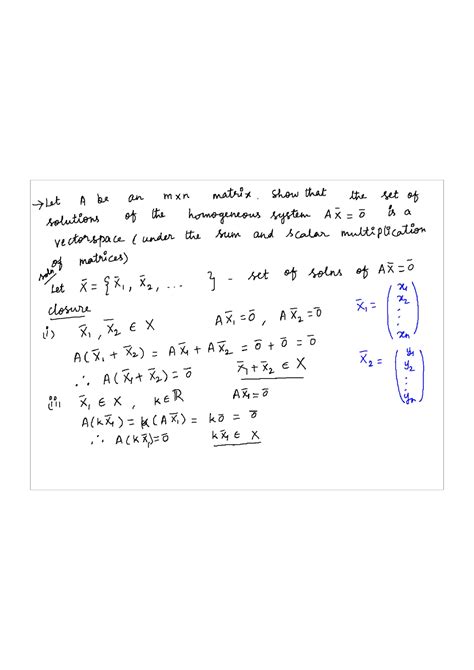 → Let A be an m×n matrix. Show that the set of
solutions of the homogeneous system A x̄ = ō is a
vector space (under the sum and scalar multiplication
of matrices)
soln Let X̄ = { x̄₁, x̄₂, ... } - set of solns of A x̄ = ō
closure
(i) x̄₁, x̄₂ ∈ X    A x̄₁ = ō , A x̄₂ = ō
x̄₁ = ( x₁ x₂ : : xn )
A(x̄₁ + x̄₂) = A x̄₁ + A x̄₂ = ō + ō = ō
∴ A(x̄₁ + x̄₂) = ō    x̄₁ + x̄₂ ∈ X
x̄₂ = ( y₁ y₂ : : yn )
(ii) x̄₁ ∈ X , k ∈ ℝ    A x̄₁ = ō
A(k x̄₁) = k(A x̄₁) = k ō = ō
∴ A(k x̄₁) = ō    k x̄₁ ∈ X